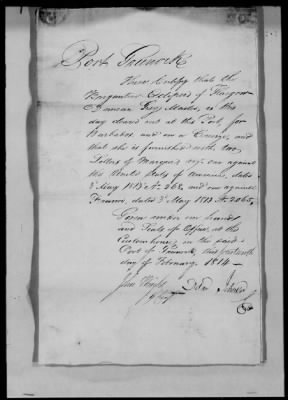 Port Greenock
These Certify that the
Brigantine Eclipse of Glasgow
Duncan Gray Master, is this
day cleared out at this Port, for
Barbados and on a Cruize, and
that she is furnished with two
Letters of Marque, viz. one against
the United States of America, dated
3 May 1813 No. 268, and one against
France, dated 3 May 1813 No. 2065.
Given under our hands
and Seals of Office, at the
Customhouse, in the said
Port of Greenock, this
day of February, 1814 —
John